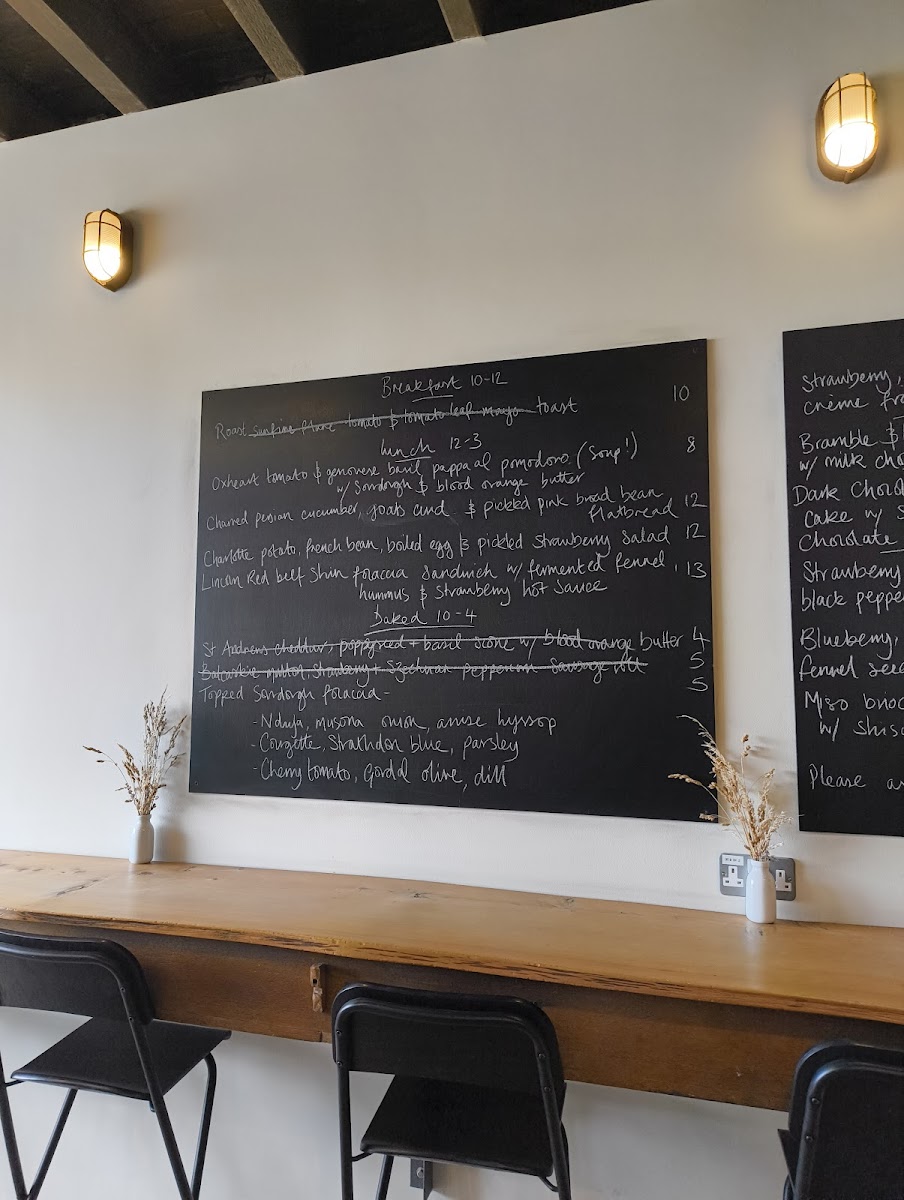 Breakfast 10-12
Roast sunfire flare tomato & tomato leaf mayo toast 10
Lunch 12-3
Oxheart tomato & genovese basil pappa al pomodoro (Soup!) 8
w/ Sourdough & blood orange butter
Charred persian cucumber, goats curd & pickled pink broad bean
flatbread 12
Charlotte potato, french bean, boiled egg & pickled Strawberry Salad 12
Lincoln Red beef Shin focaccia Sandwich w/ fermented fennel, 13
hummus & Strawberry hot sauce
Baked 10-4
St Andrews cheddar, poppyseed + basil scone w/ blood orange butter 4
mutton, Strawberry + Szechuan peppercorn Sausage roll 5
Topped Sourdough focaccia - 5
- Nduja, onion, anise hyssop
- Courgette, Strathdon blue, parsley
- Cherry tomato, Gordal olive, dill
Strawberry,
crème fra
Bramble &
w/ milk cho
Dark Chocol
Cake w/ S
Chocolate
Strawberry
black peppe
Blueberry,
fennel seed
Miso brioc
w/ Shiso
Please